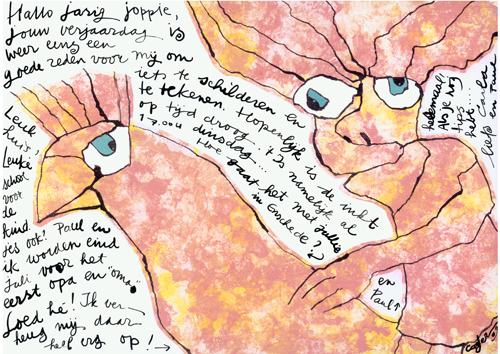 Hallo jarig joppie,
Jouw verjaardag is
weer eens een
goede reden voor mij om
iets te schilderen en
te tekenen. Hopenlijk is de inkt
op tijd droog... 't Is namelijk al
dinsdag...
Hoe gaat het met jullie
in Enschede?
Leuk
huis,
Leuke
school
voor
de
kind
jes ook! Paul en
ik worden eind
Juli voor het
eerst opa en "oma"
Goed hè! Ik ver
heug mij daar
heel erg op! →
helemaal
Als je nog
tips
hebt...
liefs
en
Paul ↑